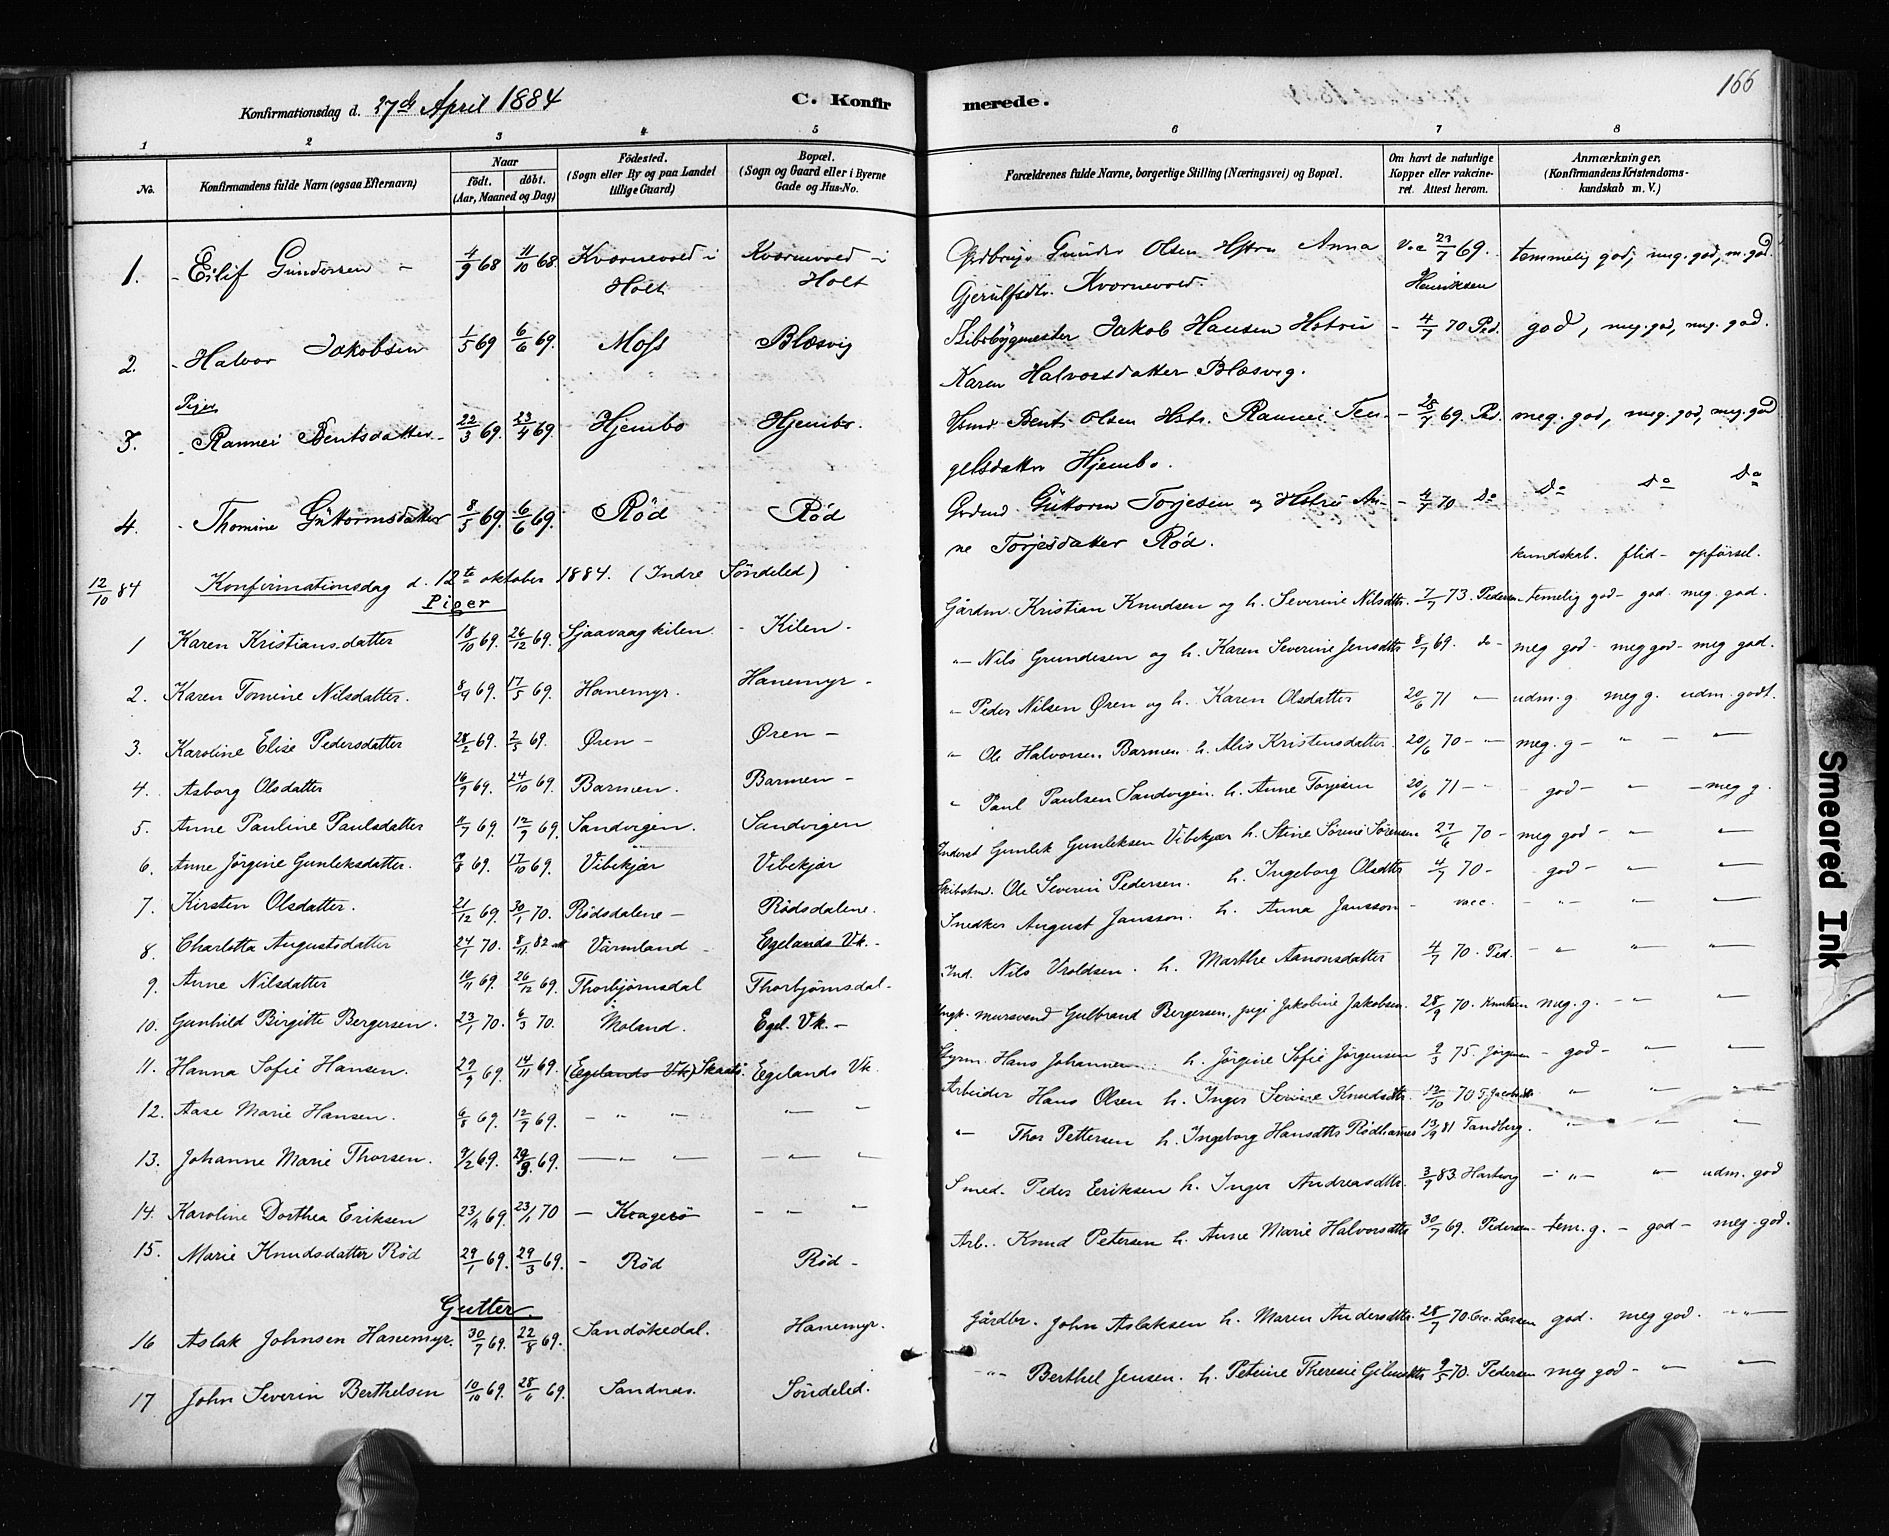 166
Konfirmationsdag d. 27de April 1884 C. Konfirmerede.
1 2 3 4 5 6 7 8
No. Konfirmandens fulde Navn (ogsaa Efternavn) Naar födt. döbt. (Aar, Maaned og Dag) Födested. (Sogn eller By og paa Landet tillige Gaard) Bopæl. (Sogn og Gaard eller i Byerne Gade og Hus-No. Forældrenes fulde Navne, borgerlige Stilling (Næringsvei) og Bopæl. Om havt de naturlige Kopper eller vakcineret. Attest herom. Anmærkninger. (Konfirmandens Kristendomskundskab m. V.)
1. Eilif Gundersen 4/9 68 11/10 68. Kvornevold i Holt Kvornevold i Holt Gunder Olsen Hstru Anna Kvornevold. Vac 23/7 69. Henriksen temmelig god, meg. god, m. god.
2. Halvor Jakobsen 1/5 69 6/6 69. Moss Blæsvig Skibsbygmester Jakob Hansen Hstru Karen Halvorsdatter Blæsvig. 4/7 70 Ped. god, meg. god, meg. god.
Piger
3. Rannei Bentsdatter 22/3 69. 23/4 69. Hjembo Hjembo. Bent Olsen Hstr. Rannei Tengelsdatter Hjembo. 25/7 69. Ped. meg. god, meg. god, meg. god
4. Thomine Guttormsdatter 8/5 69. 6/6 69. Röd Röd Guttorm Torjesen og Hstru Anne Torjesdatter Röd. 4/7 70 Do Do Do Do
kundskab. flid - opförsel.
12/10 84 Konfirmationsdag d. 12te oktober 1884. (Indre Söndeled)
Piger
1 Karen Kristiansdatter 18/10 69. 26/12 69. Sjaavaag kilen. Kilen. Gårdm. Kristian Knudsen og h. Severine Nilsdtr. 7/7 73. Pedersen temelig god - god. meg. god.
2. Karen Tomine Nilsdatter. 8/4 69. 17/5 69. Hanemyr. Hanemyr - " Nils Grundesen og h. Karen Severine Jensdtr 8/7 69. do - meg god - meg god - meg god.
3. Karoline Elise Pedersdatter 28/2 69. 2/5 69. Øren - Øren - " Peder Nilsen Øren og h. Karen Olsdatter 20/6 71 " udm. g. meg g. udm. godt.
4. Asborg Olsdatter 16/9 69. 24/10 69. Barmen. Barmen - " Ole Halvorsen Barmen h. Alis Kristensdatter. 20/6 70 - " meg. g - " - "
5. Anne Pauline Paulsdatter 11/7 69. 12/9 69. Sandvigen. Sandvigen " Paul Paulsen Sandvigen. h. Anne Torjesen 20/6 71 - " - god - " - meg g.
6. Anne Jörgine Gunleksdatter. 8 69. 17/10 69. Vibekjær Vibekjær Inderst Gunlek Gunleksen Vibekjær h. Stine Sörine Sörensen 27/6 70 - meg god - " "
7. Kirsten Olsdatter. 21/12 69. 30/1 70. Rödsdalene - Rödsdalene. Ole Severin Pedersen. h. Ingeborg Olsdtr 4/7 70 - god - " "
8. Charlotta Augustsdatter 24/1 70. 8/11 82 Värmland Egelands Vk. Snedker August Jansson. h. Anna Jansson - vacc. - " - " "
9. Anne Nilsdatter 10/11 69. 26/12 69. Thorbjörnsdal Thorbjörnsdal - Ind. Nils Vroldsen. h. Marthe Aanonsdatter 4/7 70. Ped. - " " "
10. Gunhild Birgitte Bergersen. 23/1 70. 6/3 70. Moland. Egel. Vk. - Ungk. mursvend Gulbrand Bergersen, pige Jakobine Jakobsen. 28/9 70. Knutsen meg. g. - " "
11. Hanna Sofie Hansen. 29/9 69. 14/11 69. (Egelands Vk) Skaatö. Egelands Vk. Styrm. Hans Johannes h. Jörgine Sofie Jörgensen 9/3 75. Jörgensen - god - " "
12. Aase Marie Hansen. 6/8 69. 12/9 69. - " " " " Arbeider Hans Olsen h. Inger Serine Knudsdtr. 12/10 70 " " "
13. Johanne Marie Thorsen. 9/2 69. 29/3 69. " " - " " " Thor Pettersen h. Ingeborg Hansdtr Rödhamer 13/9 81 Tandberg. " " "
14. Karoline Dorthea Eriksen 23/11 69. 23/1 70 - Kragerö - " " Smed. Peder Eriksen h. Inger Andreasdtr. 3/9 83. Harbog - " - " udm. god
15. Marie Knudsdatter Röd 29/1 69. 29/3 69. - Röd Röd - Arb. Knud Petersen h. Anne Marie Halvorsdtr 30/7 69. Pedersen - tem. g. - god - meg. god.
Gutter.
16 Aslak Johnsen Hanemyr. 30/7 69. 22/8 69. Sandökedal. Hanemyr. Gårdbr. John Aslaksen h. Maren Andersdtr. 28/7 70. Lassen god. meg god. " "
17 John Severin Berthelsen 10/10 69. 28/11 69. Sandnæs. Söndeled. " Berthel Jensen. h. Petrine Theresie 9/5 70. Pedersen meg god - " "
Smeared Ink